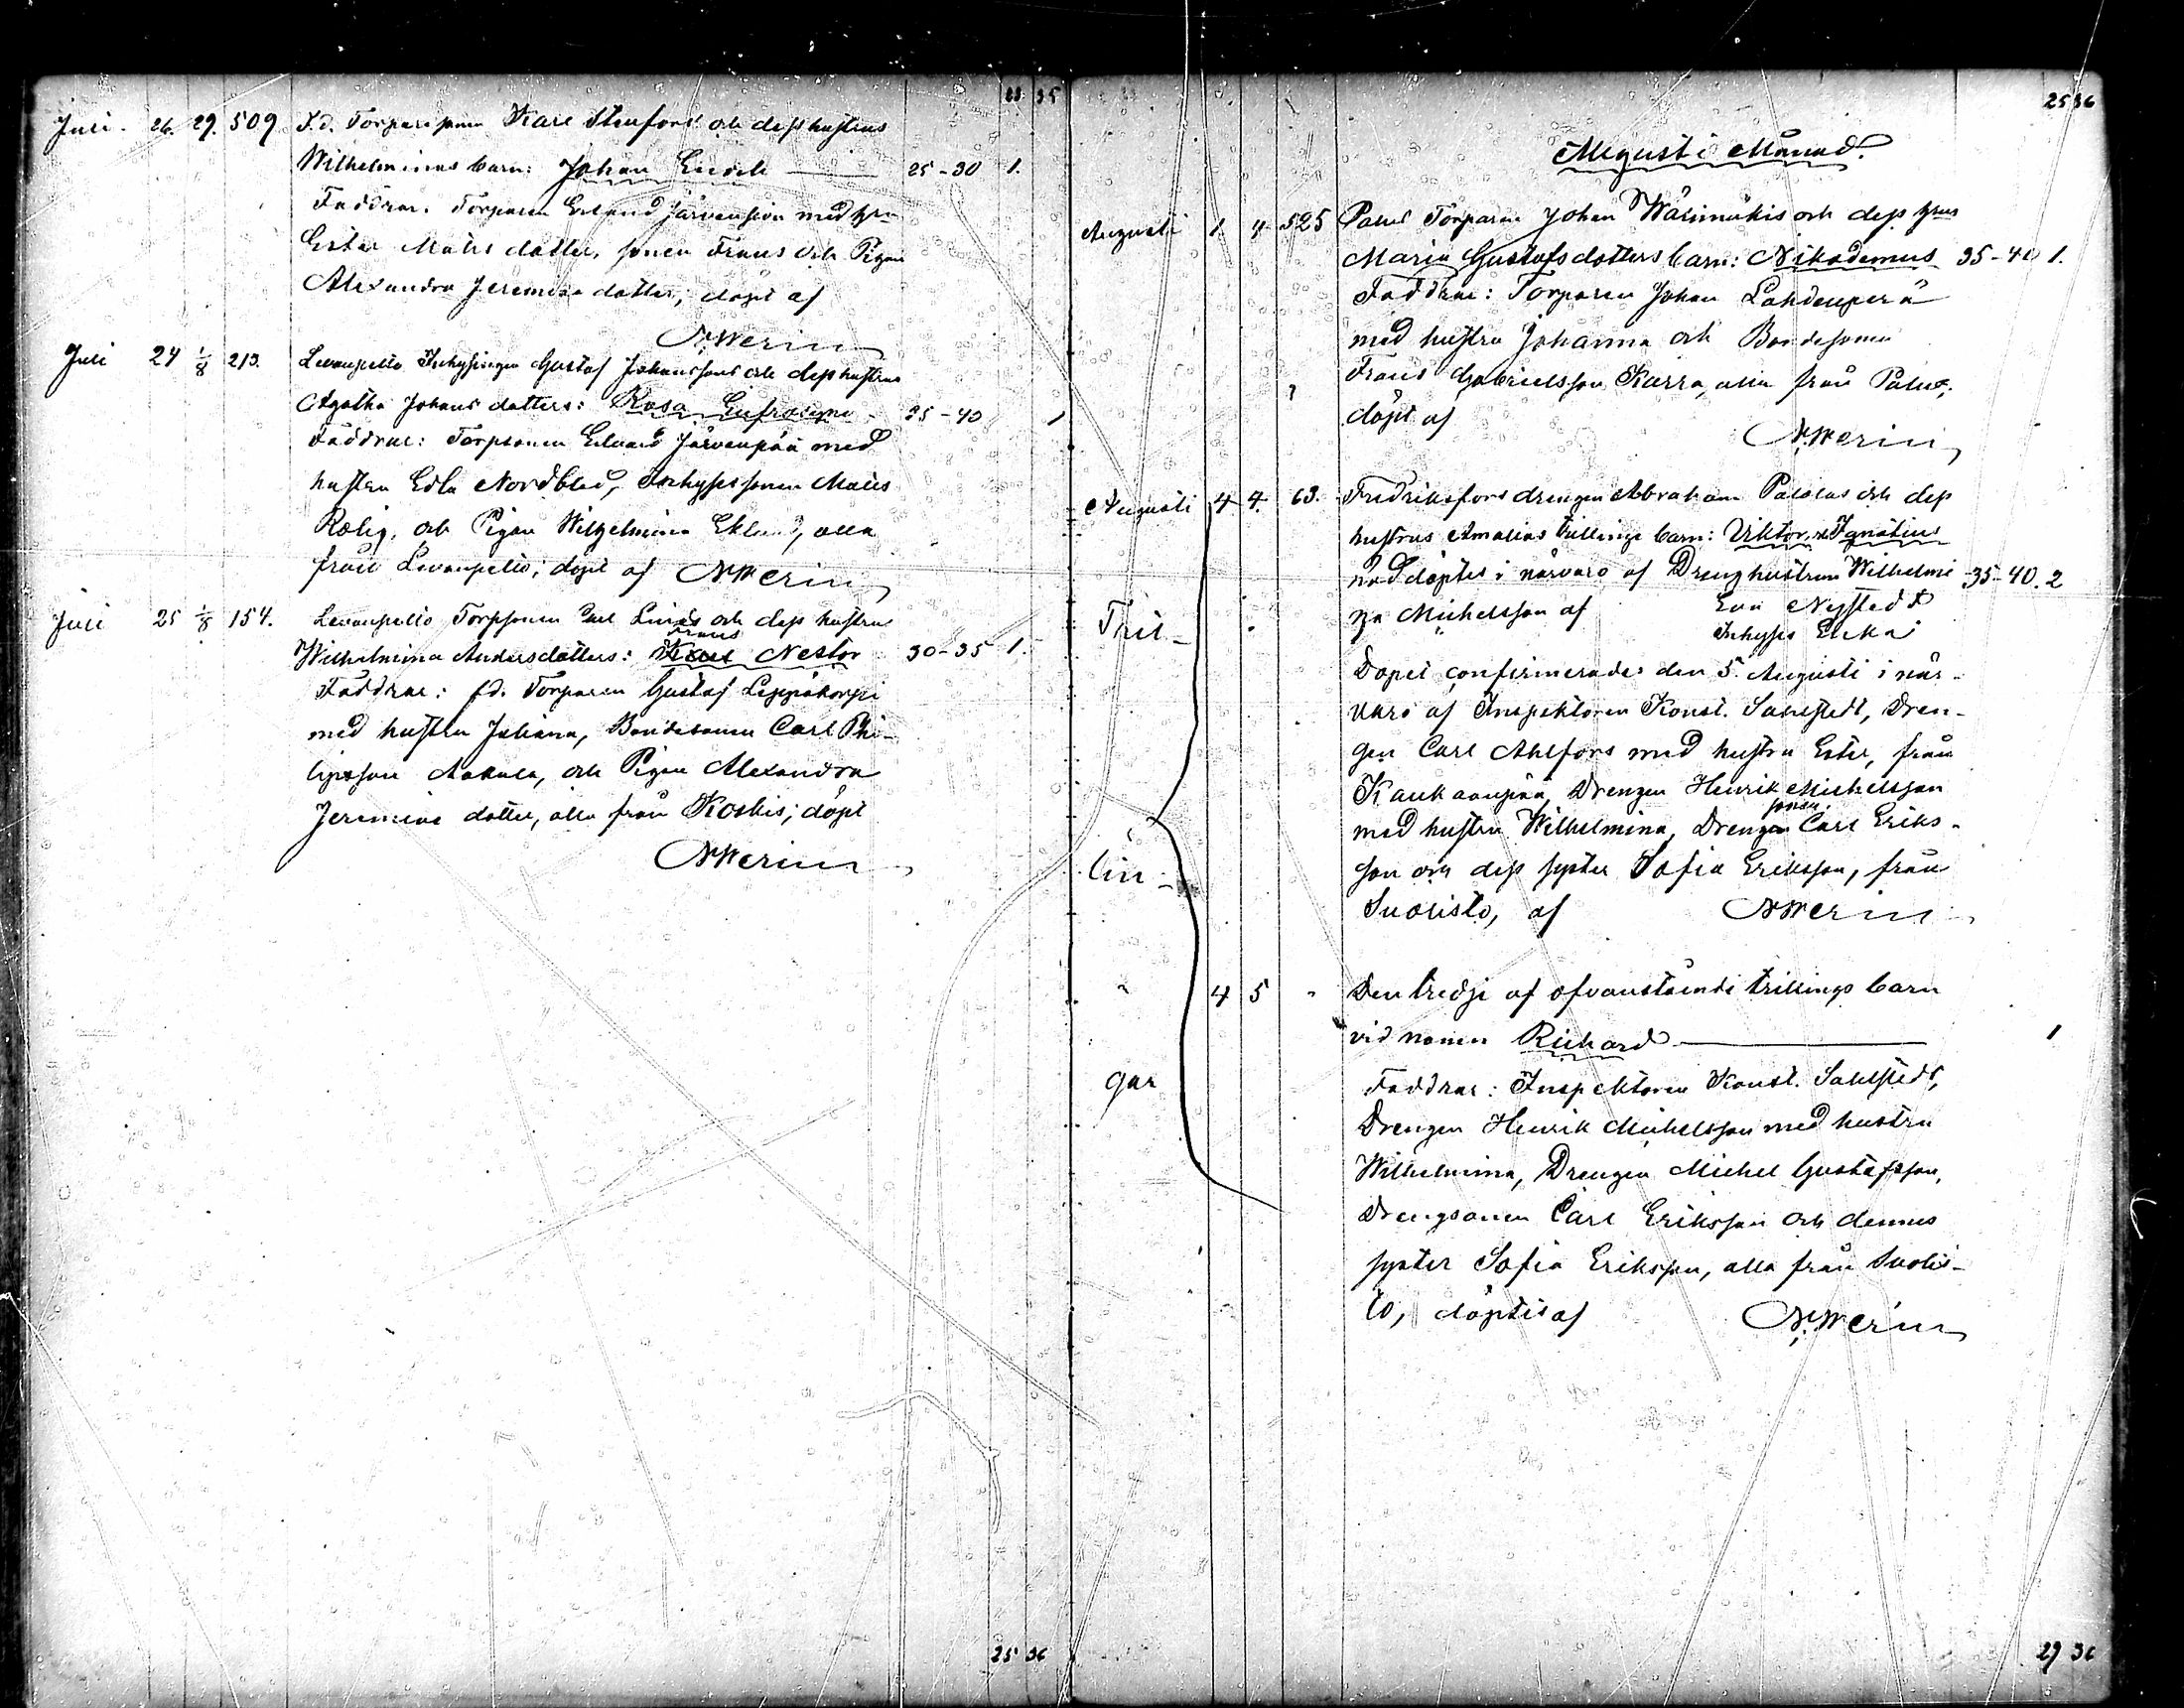 23 35
Juli. 26. 29. 509 F.d. Torparesonen Karl Stenfors och dess hustrus
Wilhelminas barn: Johan Emil 25-30 1.
Faddrar: Torparen Erland Järvensivu med hru
Ester Matts dotter, sonen Frans och Pigan
Alexandra Jeremias dotter; döpt af
N. Werin
Juli 24 1/8 213. Levanpelto Inhysingen Gustaf Johanssons och dess hustrus
Agatha Johans dotters: Rosa Eufrosyne 35-40 1
Faddrar: Torpsonen Edvard Järvenpää med
hustru Edla Nordblad, Inhyses sonen Matts
Rolig, och Pigan Wilhelmina Eklund, alla
från Levanpelto; döpt af N. Werin
Juli 25 1/8 154. Levanpelto Torpsonen Carl Linds och dess hustrus
Frans
Wilhelmina Andersdotters: Nestor 30-35 1.
Faddrar: fd. Torparen Gustaf Leppäkorpi
med hustru Juliana, Bondesonen Carl Phi-
lipsson, och Pigan Alexandra
Jeremias dotter, alla från Koskis; döpt
N. Werin
25 36
25 36
Augusti Månad.
Augusti 1 4 525 Palus Torparen Johan Wärimäkis och dess hrus
Maria Gustafsdotters barn: Nikodemus 35-40 1.
Faddrar: Torparen Johan Lahdenperä
med hustru Johanna och Bondesonen
Frans Gabrielsson Karra, alla från Palus;
döpt af
N. Werin
Augusti 4 4. 63. Fredriksfors drengen Abraham Palolas och dess
hustrus Amalias trillings barn: Viktor, & Ignatius
nöddöptes i närvaro af Dreng hustrun Wilhelmi 35-40. 2
na Michelsson af Eva Nystedt
Tril-
Inhyses Enka
Dopet confirmerades den 5. Augusti i när-
varo af Inspektoren Konst. Sahlstedt, Dren-
gen Carl Ahlfors med hustru Ester, från
Kaukaanpää, Drengen Henrik Michelsson
sonen
med hustru Wilhelmina, Drengen Carl Eriks-
lin-
son och dess syster Sofia Eriksson, från
Suoristo, af N. Werin
" 4 5 " Den tredje af ofvanstående trillings barn
vid namn Richard 1
gar
Faddrar: Inspektoren Konst. Sahlstedt,
Drengen Henrik Michelsson med hustru
Wilhelmina, Drengen Michel Gustafsson,
Drengsonen Carl Eriksson och dennes
syster Sofia Eriksson, alla från Suoris-
to, döptes af N. Werin
29 36